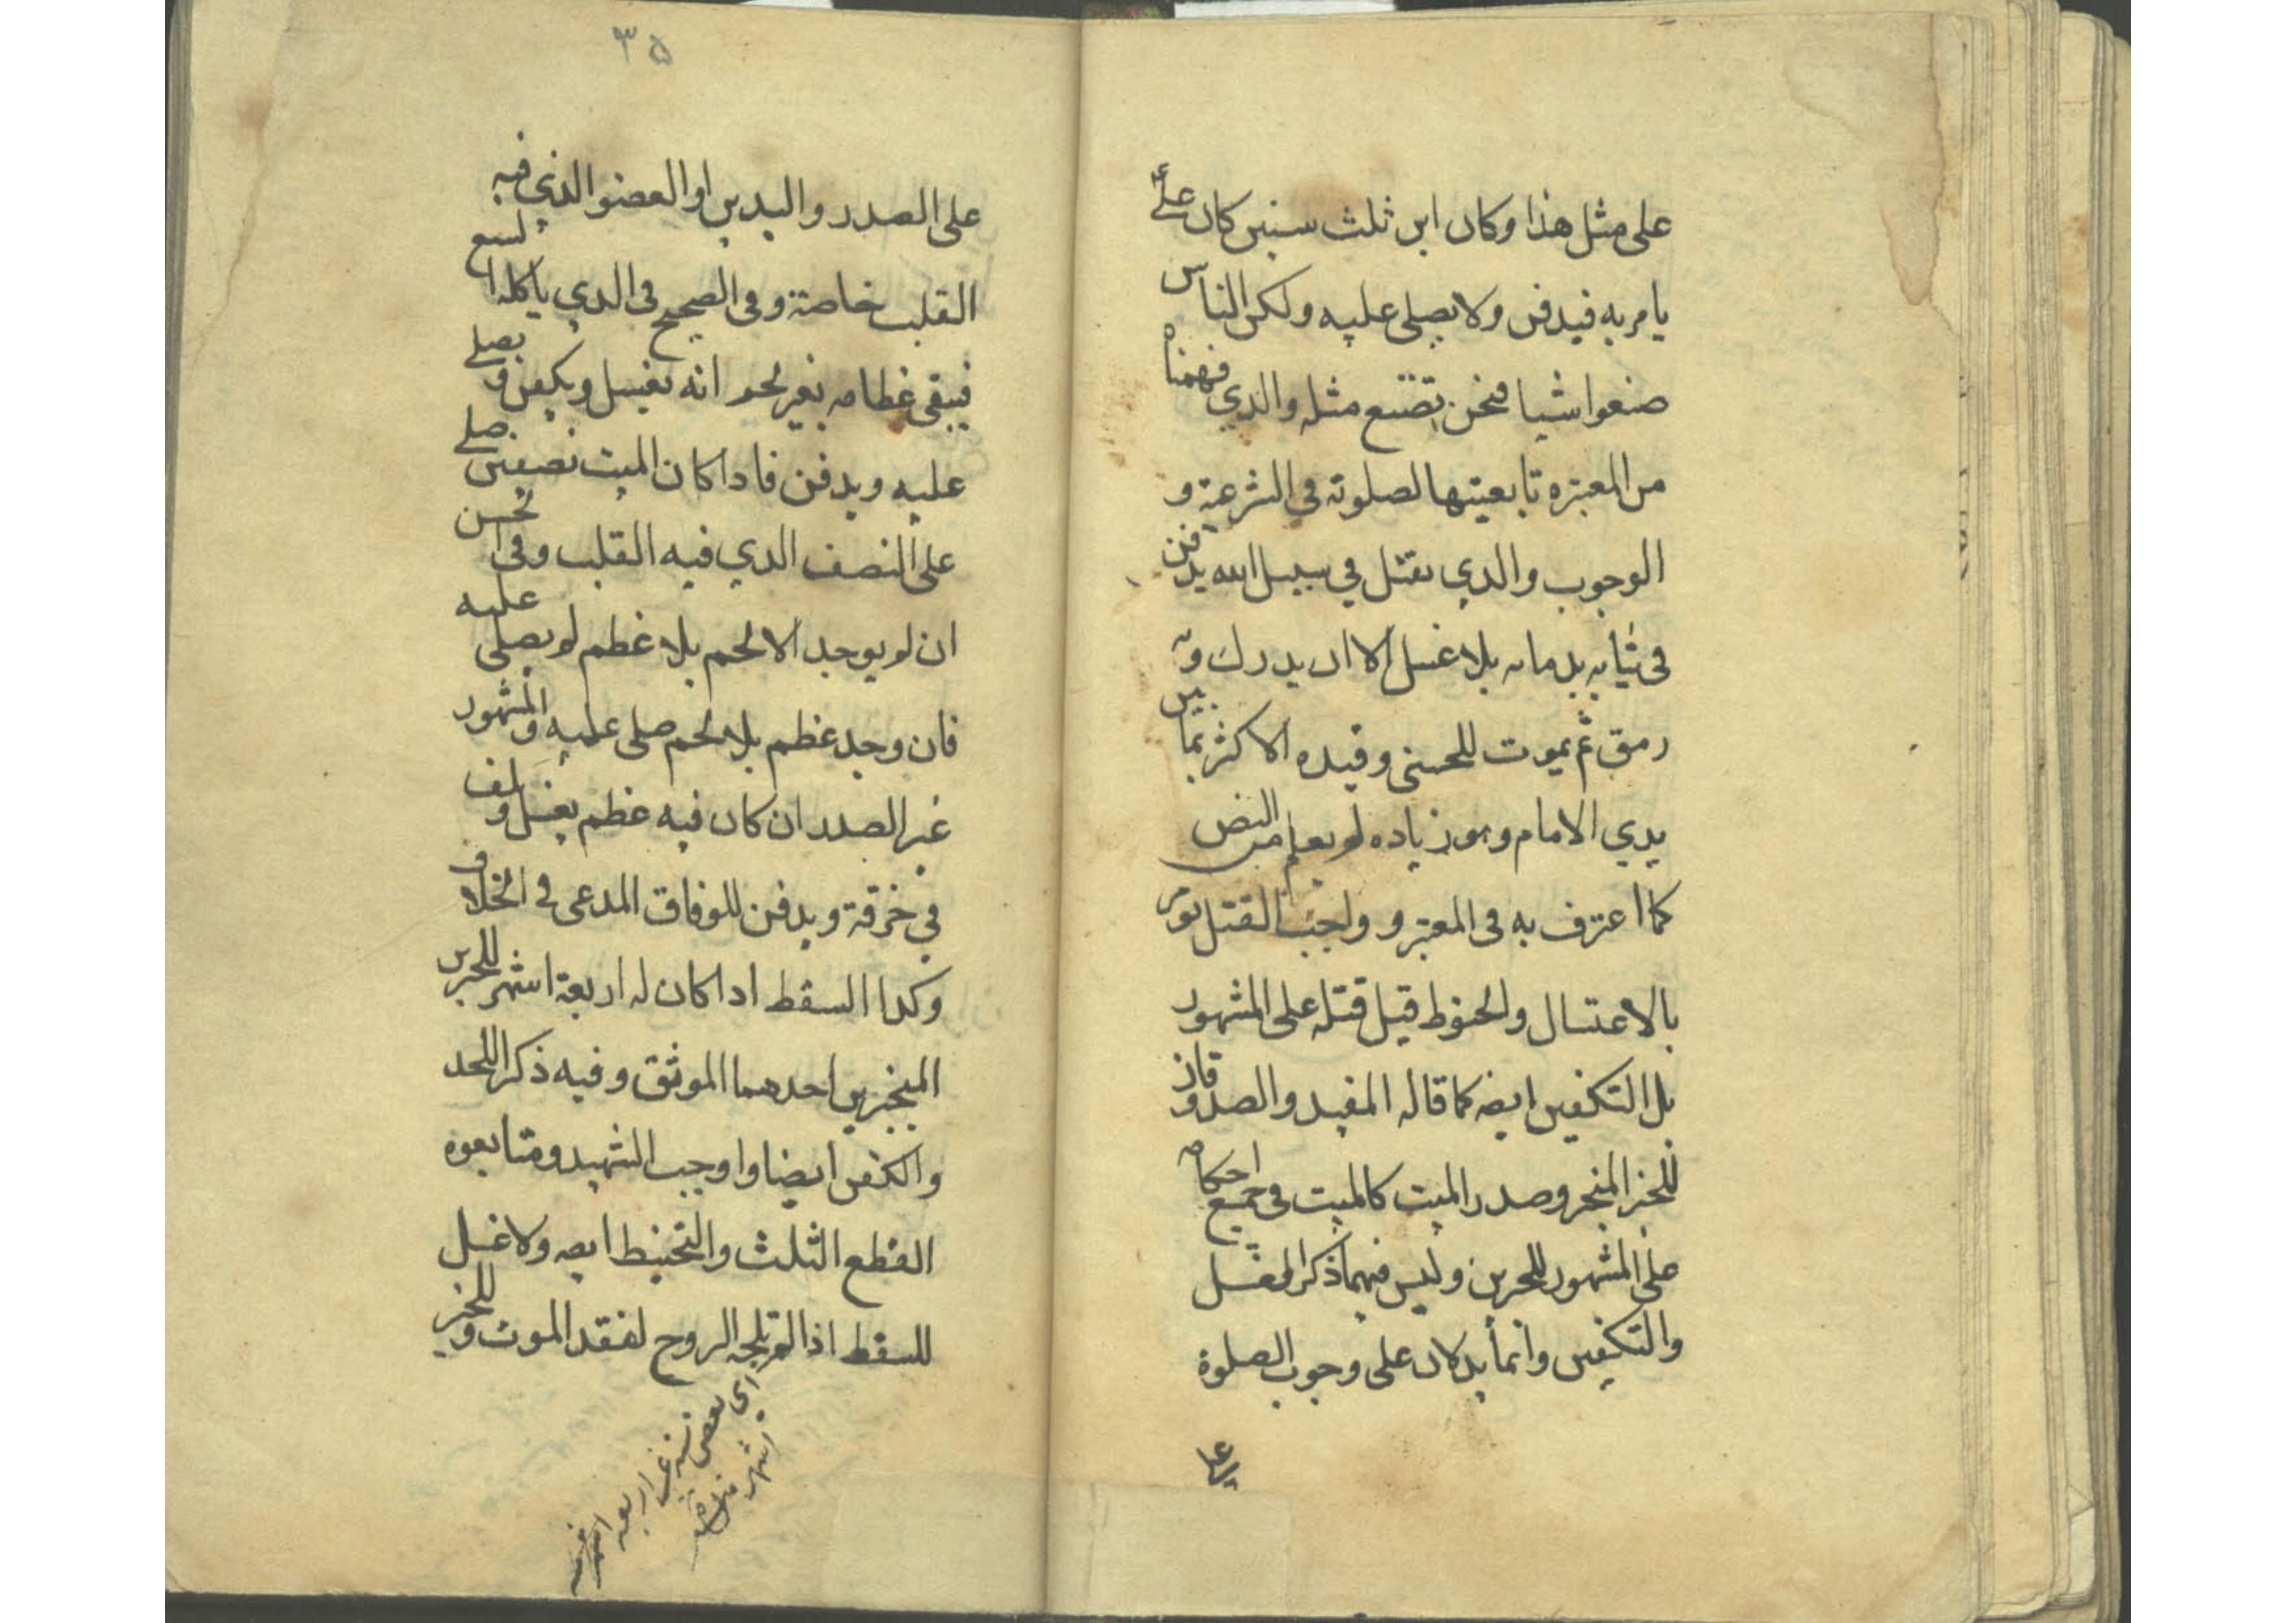 على مثل هذا وكان ابن ثلث سنين كان علىؑ
يامر به فيدفن ولا يصلى عليه ولكن الناس
صنعوا شيا فنحن نصنع مثله والذي فهمناه
من المعتبره تابعيتها لصلوته فى الشرعية و
الوجوب والذي يقتل في سبيل الله يدفن
فى ثيابه بدمائه بلا غسل الا ان يدرك وبه
رمق ثم يموت للحسنى وقيده الاكثر بما بين
يدي الامام وهو زياده لم يعلم من النص
كما اعترف به فى المعتبر و واجب القتل يؤمر
بالاغتسال والحنوط قبل قتله على المشهور
بل التكفين ايضه كما قاله المفيد والصدوقان
للخبر المنجبر وصدر الميت كالميت فى جميع احكامه
على المشهور للخبرين وليس فيهما ذكر الغسل
والتكفين وانما يدلان على وجوب الصلوة
٣٥
على الصدر واليدين او العضو الذي فيه
القلب خاصة وفى الصحيح فى الذي ياكله السبع
فيبقى عظامه بغير لحم انه يغسل ويكفن و يصلى
عليه ويدفن فاذا كان الميت نصفين صلى
على النصف الذي فيه القلب وفى الحسن
ان لم يوجد الا لحم بلا عظم لم يصلى عليه
فان وجد عظم بلا لحم صلى عليه والمشهور
غير الصدر ان كان فيه عظم يغسل و يلف
في خرقة ويدفن للوفاق المدعى فى الخلاف
وكذا السقط اذا كان له اربعة اشهر للخبرين
المنجبرين احدهما الموثق وفيه ذكر اللحد
والكفن ايضا واوجب الشهيد ومتابعوه
القطع الثلث والتحنيط ايضه ولا غسل
للسقط اذا لم تلجه الروح لفقد الموت و للخبر